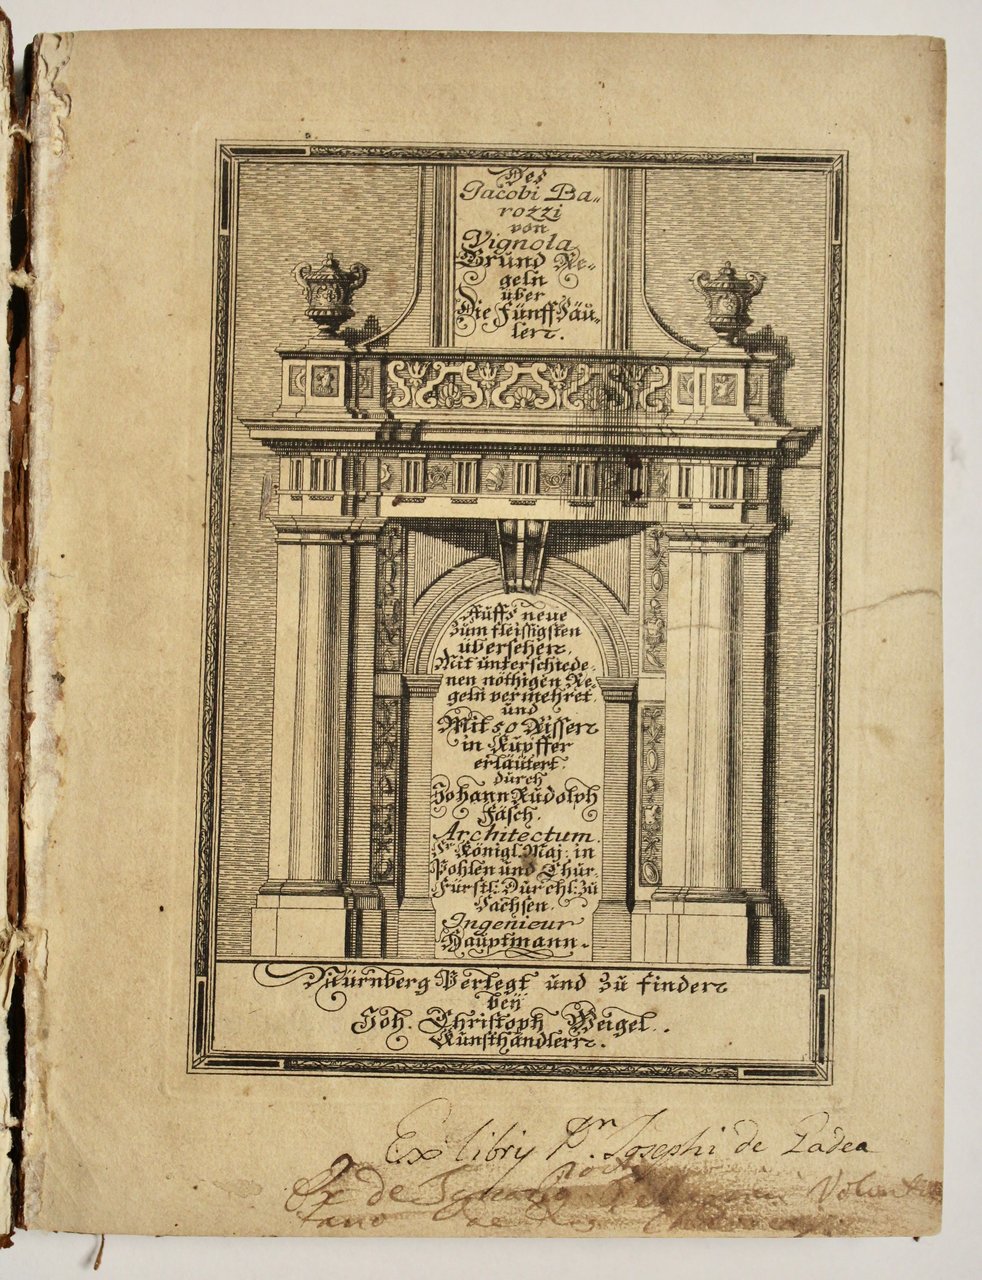 Des
Jacobi Ba-
rozzi
von
Vignola
Grund Re-
geln
über
Die Fünff Säu-
len.
Auffs neue
Zum fleissigsten
übersehen,
Mit unterschiede-
nen nöthigen Re-
geln vermehret
und
Mit 50 Rissen
in Kupffer
erläutert
durch
Johann Rudolph
Fäsch.
Architectum.
Sr. Königl. Maj: in
Pohlen und Chur-
Fürstl: Durchl: Zu
Sachsen.
Ingenieur
Hauptmann.
Nürnberg Verlegt und Zu finden
beÿ
Joh. Christoph Weigel.
Kunsthändlern.
Ex libry Dn. Josephi de Zadea
Ex de